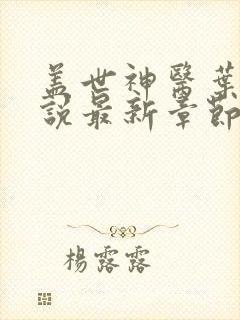 盖世神醫葉
說最新章節
楊露露